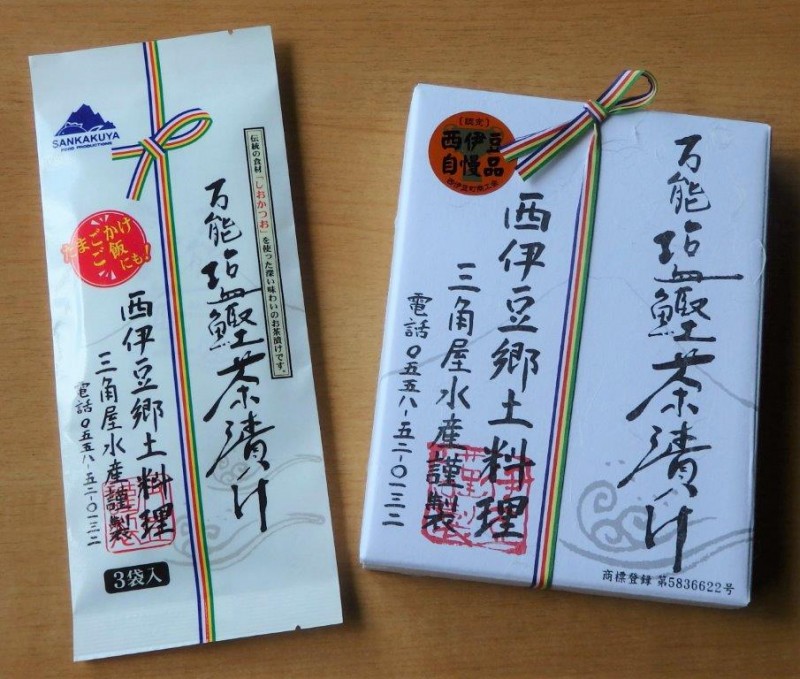 SANKAKUYA
FOOD PRODUCTIONS
たまごかけ
ご飯
にも!
伝統の食材「しおかつお」を使った深い味わいのお茶漬けです。
万能塩鰹茶漬け
西伊豆郷土料理
三角屋水産謹製
電話〇五五八-五二-〇一三二
3袋入
[認定]
西伊豆
自慢品
西伊豆町商工会
万能塩鰹茶漬け
西伊豆郷土料理
三角屋水産謹製
電話〇五五八-五二-〇一三二
商標登録 第5836622号